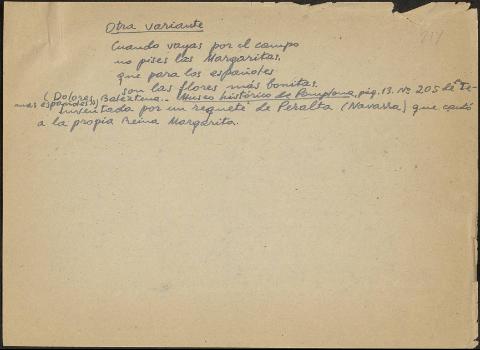 Otra variante
Cuando vayas por el campo
no pises las Margaritas.
que para los españoles
son las flores más bonitas.
(Dolores Baleztena.- Museo histórico de Pamplona, pág. 13. Nº 205 de "Te-
mas españoles")
Inventada por un requeté de Peralta (Navarra) que cantó
a la propia Reina Margarita.